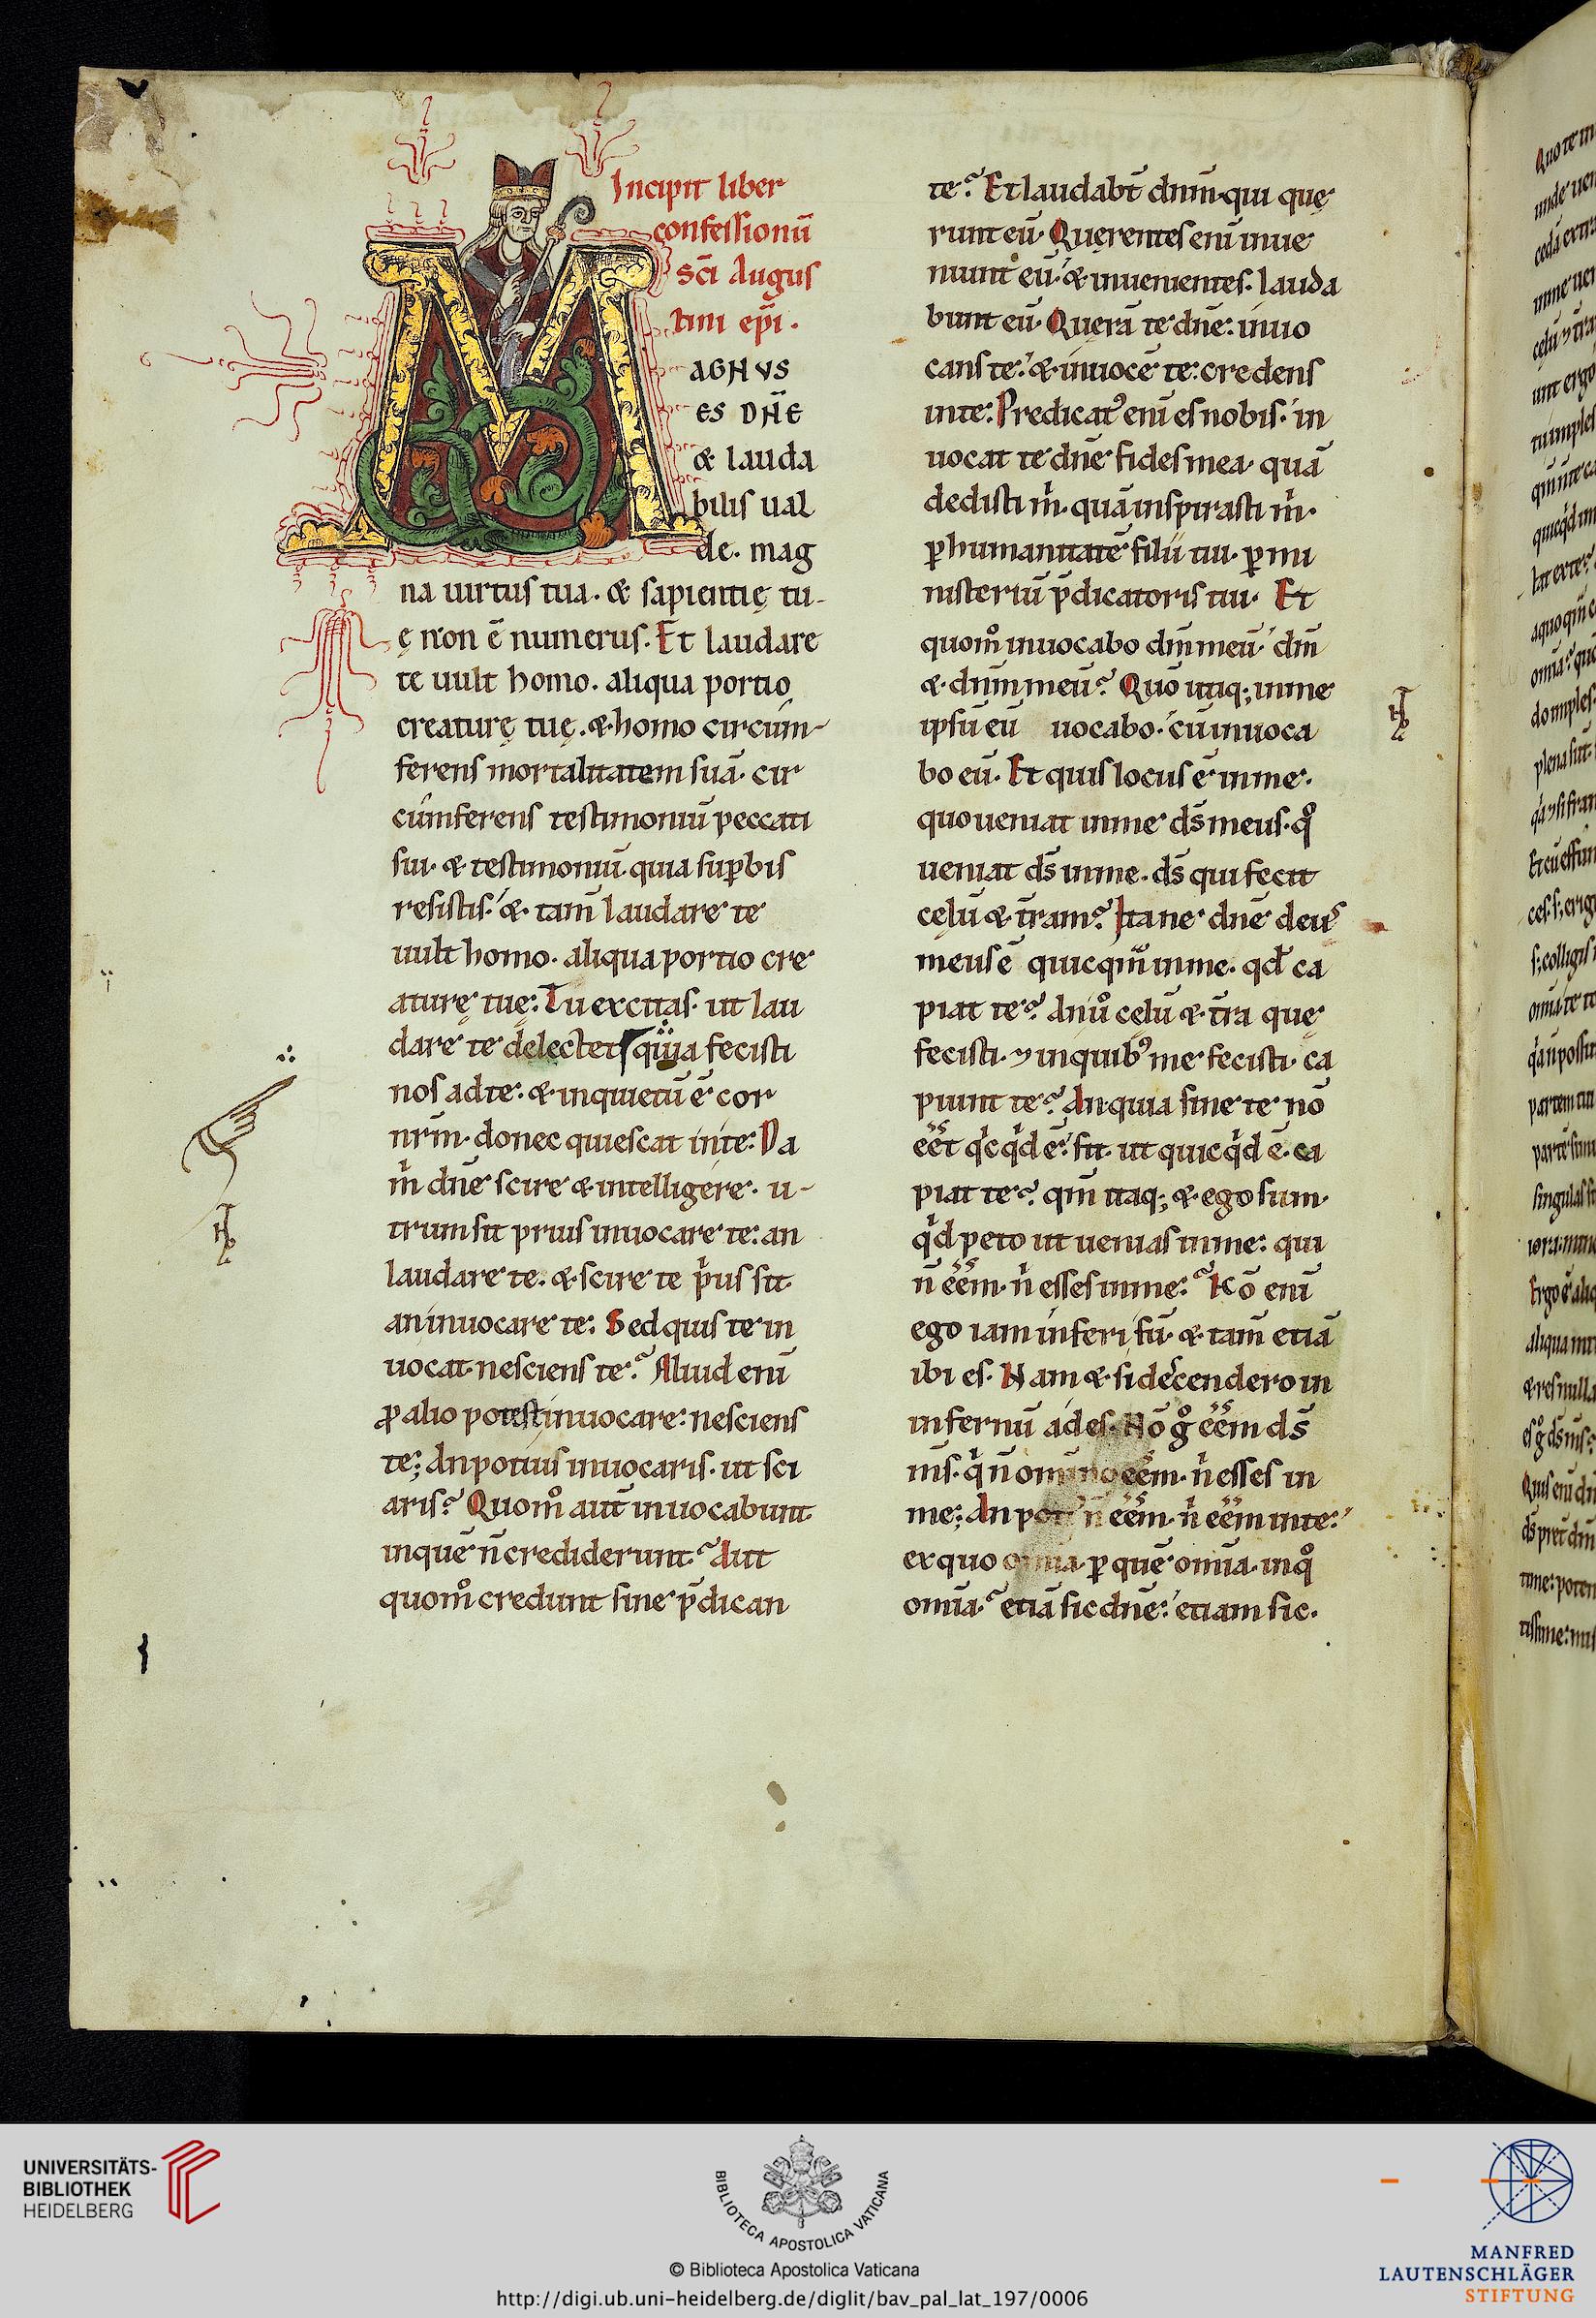 Incipit liber
confessionū
scī Augus
tini epī.
MAGNVS
ES DÑE
& lauda
bilis ual
de. mag
na uirtus tua. & sapientię tu-
ę non ē numerus. Et laudare
te uult homo. aliqua portio
creaturę tuę. & homo circum-
ferens mortalitatem suā. cir
cumferens testimoniū peccati
sui. & testimoniū. quia suꝑbis
resistis. & tam̄ laudare te
uult homo. aliqua portio cre
aturę tuę. Tu excitas. ut lau
dare te delectet quia fecisti
nos ad te. & inquietū ē cor
nr̄m. donec quiescat in te. Da
m̍ dn̄e scire & intelligere. u-
trum sit prius inuocare te. an
laudare te. & scire te p̍us sit
an inuocare te. Sed quis te in
uocat. nesciens te? Aliud enī
ꝓ alio potest inuocare. nesciens
te; An potius inuocaris. ut sci
aris? Quom̊ aut̄ inuocabunt
in quē n̄ crediderunt? Aut
quom̊ credunt sine p̄dican
te? Et laudabt̄ dnm̄. qui quę
runt eū. Quęrentes enī inue
niunt eū. & inuenientes. lauda
bunt eū. Querā te dn̄e. inuo
cans te. & inuocē te. credens
in te. Predicatꝰ enī es nobis. in
uocat te dn̄e fides mea. quā
dedisti m̍. quā inspirasti m̍.
ꝑ humanitatē filii tui. ꝑ mi
nisteriū p̄dicatoris tui. Et
quom̊ inuocabo dm̄ meū. dm̄
& dnm̄ meū? Quō utiq; in me
ipsū eū uocabo. cū inuoca
bo eū. Et quis locus ē in me.
quo ueniat in me ds̄ meus. q̊
ueniat ds̄ in me. ds̄ qui fecit
cęlū & t̄ram? Itane dn̄e deus
meus ē quicqm̄ in me. qd̄ ca
piat te? An ů cęlū & t̄ra quę
fecisti. ⁊ in quibꝰ me fecisti. ca
piunt te? An quia sine te nō
eēt q̍cq̍d ē. sit. ut quicq̍d ē. ca
piat te? qm̄ itaq; & ego sum.
q̍d peto ut uenias in me. qui
n̄ eēm. n̍ esses in me? Nō enī
ego iam inferi sū. & tam̄ etiā
ibi es. Nam & si descendero in
infernū ades. Nō g̊ eēm ds̄
ms̄. q̍ n̄ omnino eēm. n̍ esses in
me; An pot n̄ eēm. n̍ eēm in te.
ex quo omīa. ꝑ quē omīa. in q̊
omīa? etiā sic dn̄e. etiam sic.
UNIVERSITÄTS-
BIBLIOTHEK
HEIDELBERG
BIBLIOTECA APOSTOLICA VATICANA
© Biblioteca Apostolica Vaticana
http://digi.ub.uni-heidelberg.de/diglit/bav_pal_lat_197/0006
MANFRED
LAUTENSCHLÄGER
STIFTUNG